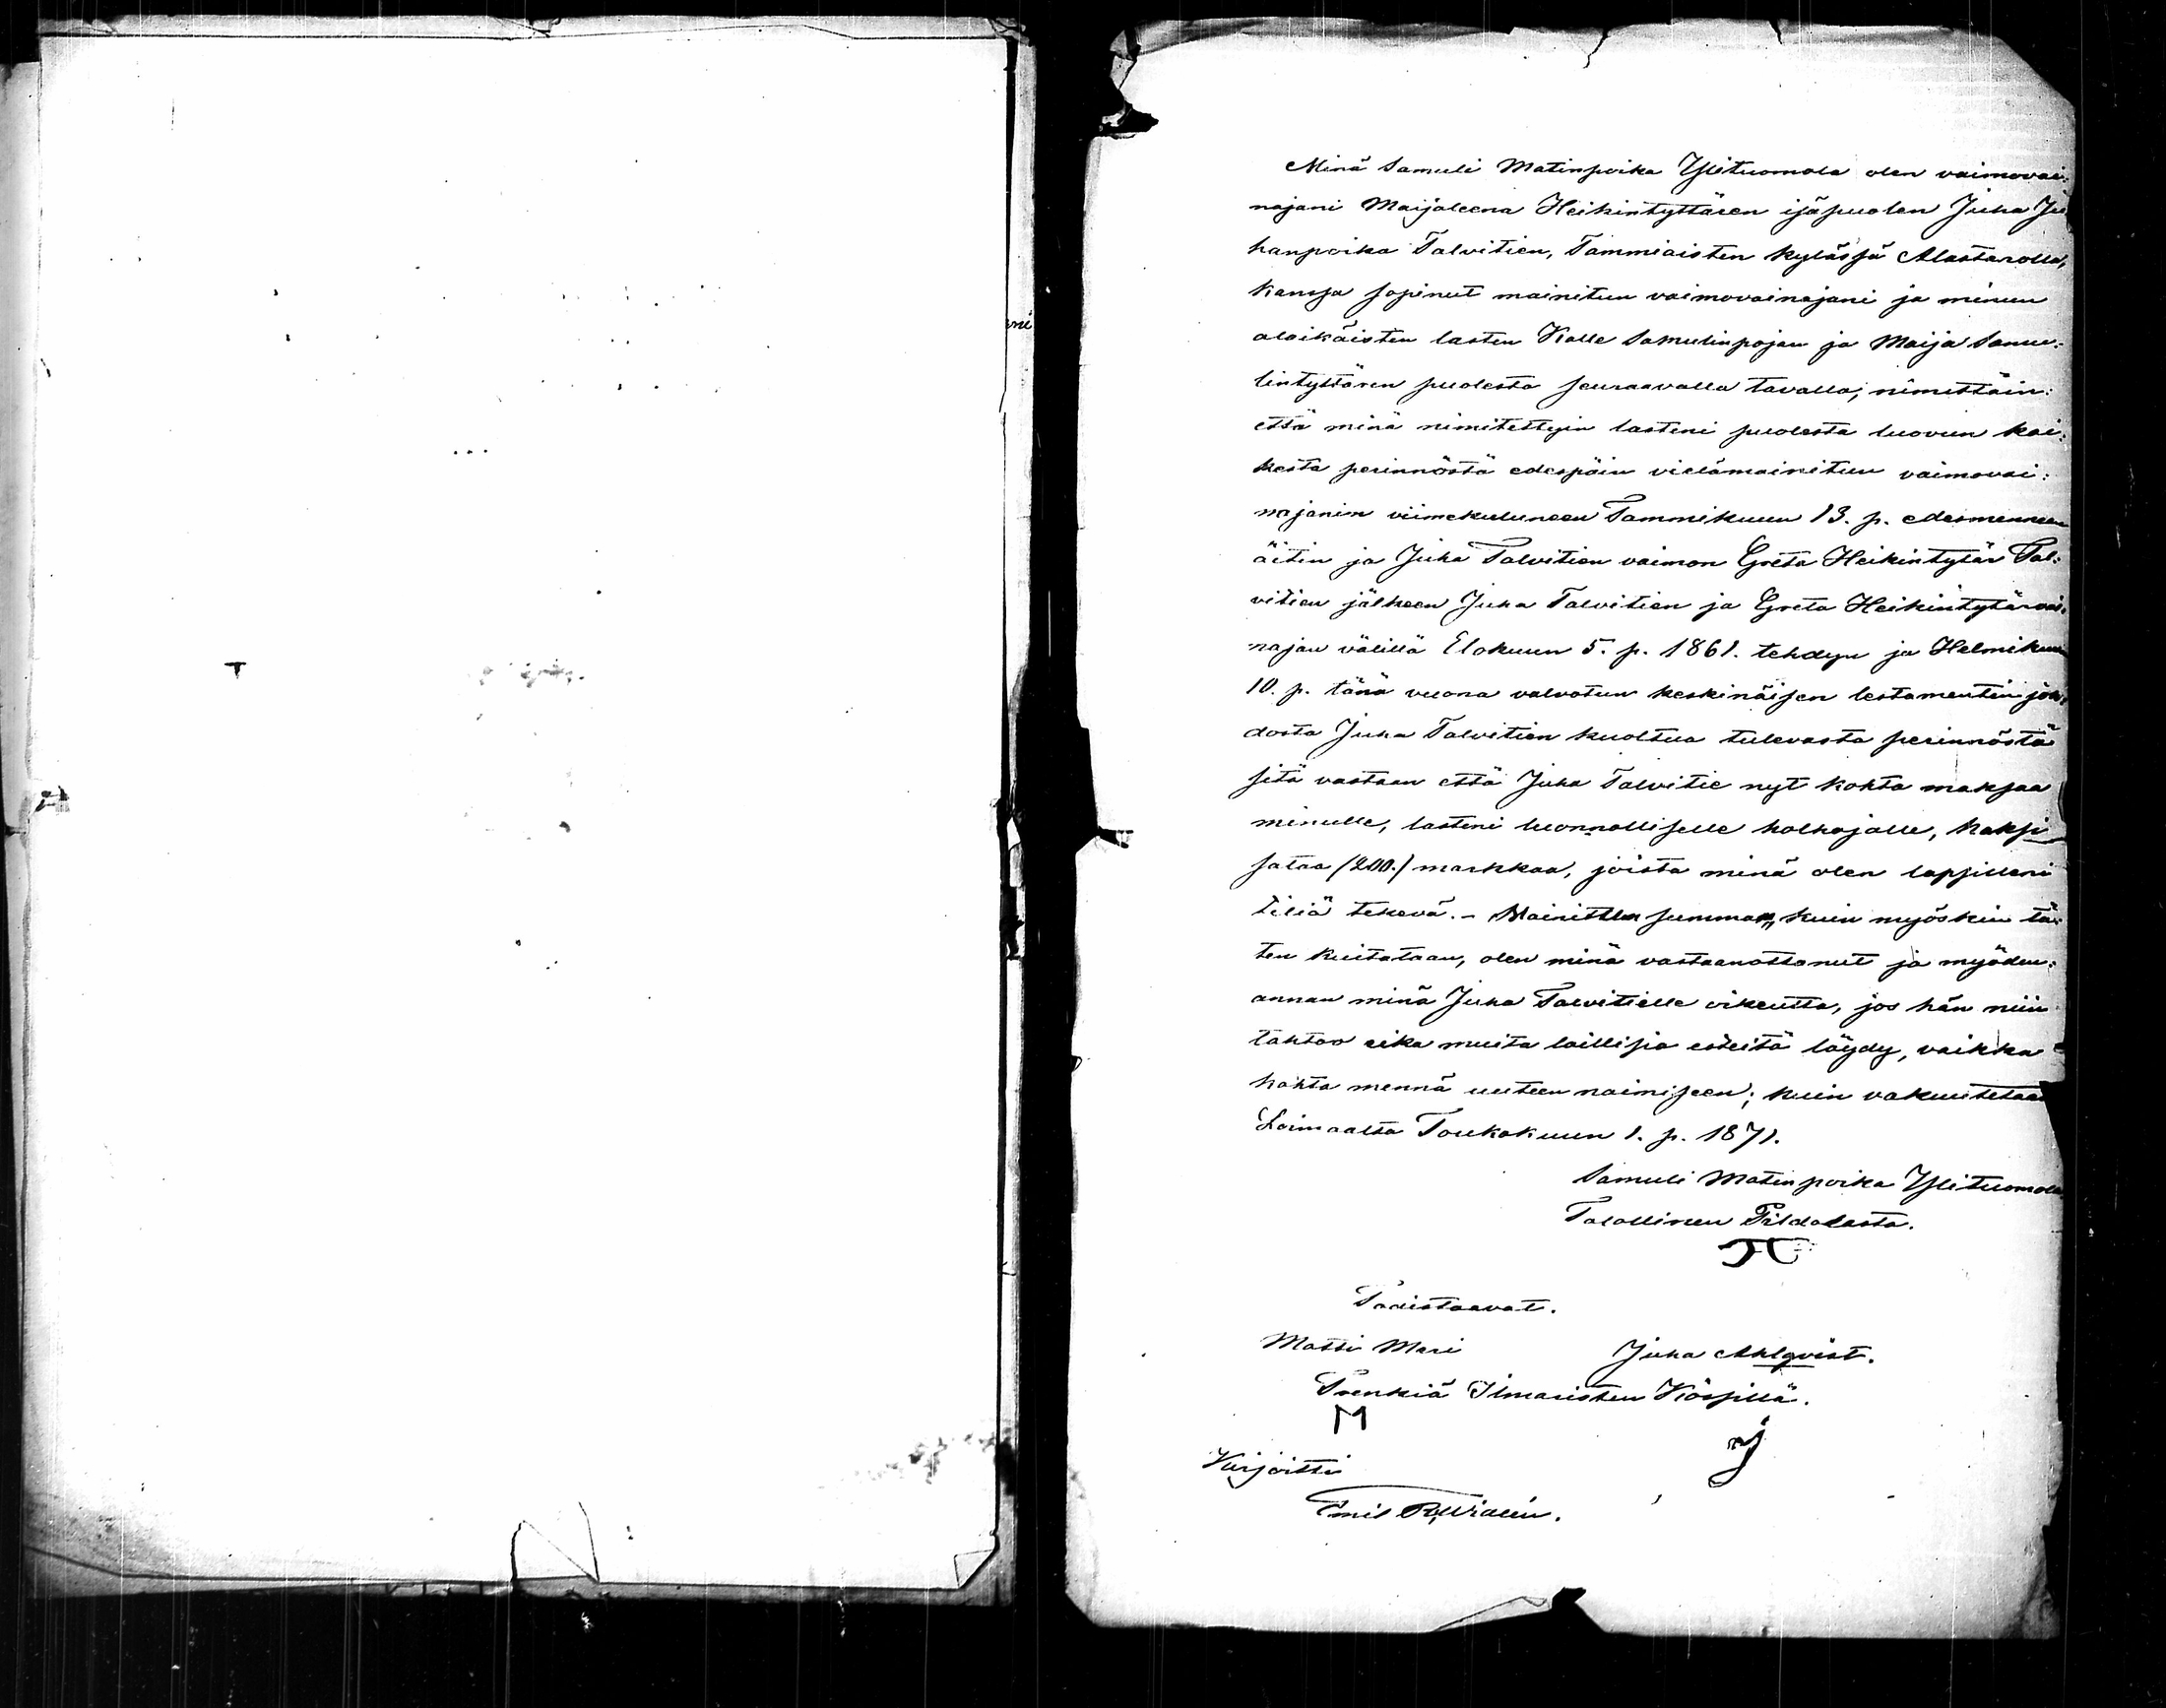 Minä Samuli Matinpoika Ylituomola olen vaimovai:
najani Maijaleena Heikintyttären isäpuolen Juha Ju
hanpoika Talvitien, Tammiaisten kylässä Alastarolla,
kanssa sopinut mainitun vaimovainajani ja minun
alaikäisten lasten Kalle Samulinpojan ja Maija Samu:
lintyttären puolesta seuraavalla tavalla; nimittäin:
että minä nimitettyin lasteni puolesta luovun kai:
kesta perinnöstä edespäin vielämainitun vaimovai:
najanin viimekuluneen Tammikuun 13. p. edesmenneen
äitin ja Juha Talvitien vaimon Greta Heikintytär Tal:
vitien jälkeen Juha Talvitien ja Greta Heikintytärvai:
najan välillä Elokuun 5. p. 1861. tehdyn ja Helmikuun
10. p. tänä vuona valvotun keskinäisen testamentin joh:
dosta Juha Talvitien kuoltua tulevasta perinnöstä
sitä vastaan että Juha Talvitie nyt kohta maksaa
minulle, lasteni luonnolliselle holhojalle, kaksi
sataa (200.) markkaa, joista minä olen lapsilleni
tiliä tekevä. – Mainitun summan, kuin myöskin tä:
ten kuitataan, olen minä vastaanottanut ja myöden:
annan minä Juha Talvitielle oikeutta, jos hän niin
tahtoo eikä muita laillisia esteitä löydy, vaikka
kohta mennä uuteen naimiseen; kuin vakuutetaan
Loimaalta Toukokuun 1. p. 1871.
Samuli Matinpoika Ylituomola
Talollinen Pildolasta.
Todistaavat.
Matti Mari Juha Ahlqvist.
Trenkiä Ilmaristen Kössillä.
M J
Kirjoitti
Emil